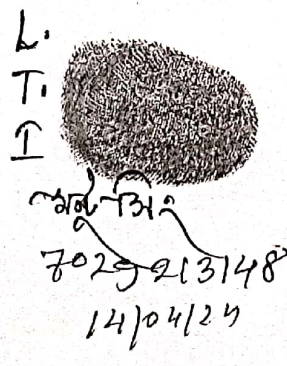 L.
T.
I
মন্টু সিং
7029213148
14/04/24